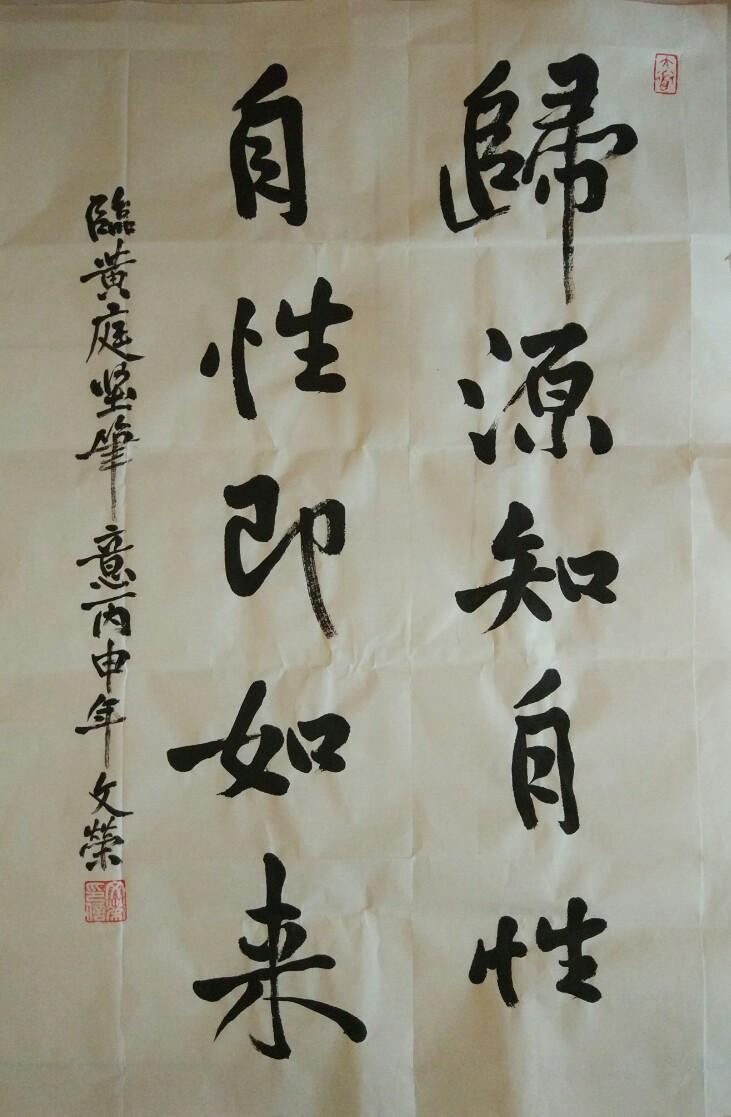 歸源知自性
自性即如来
臨黄庭坚筆意丙申年文榮